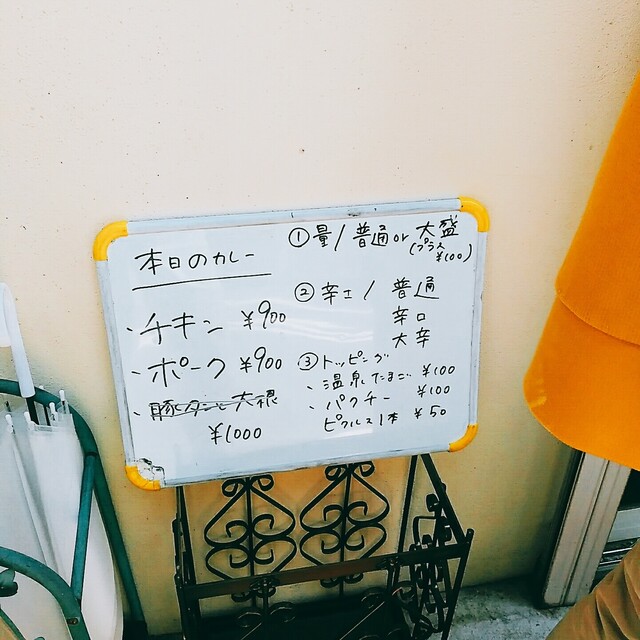 本日のカレー
・チキン ¥900
・ポーク ¥900
・豚とダンと大根
¥1000
①量/普通or大盛
(プラス¥100)
②辛さ/普通
辛口
大辛
③トッピング
・温泉たまご ¥100
・パクチー ¥100
ピクルス1本 ¥50